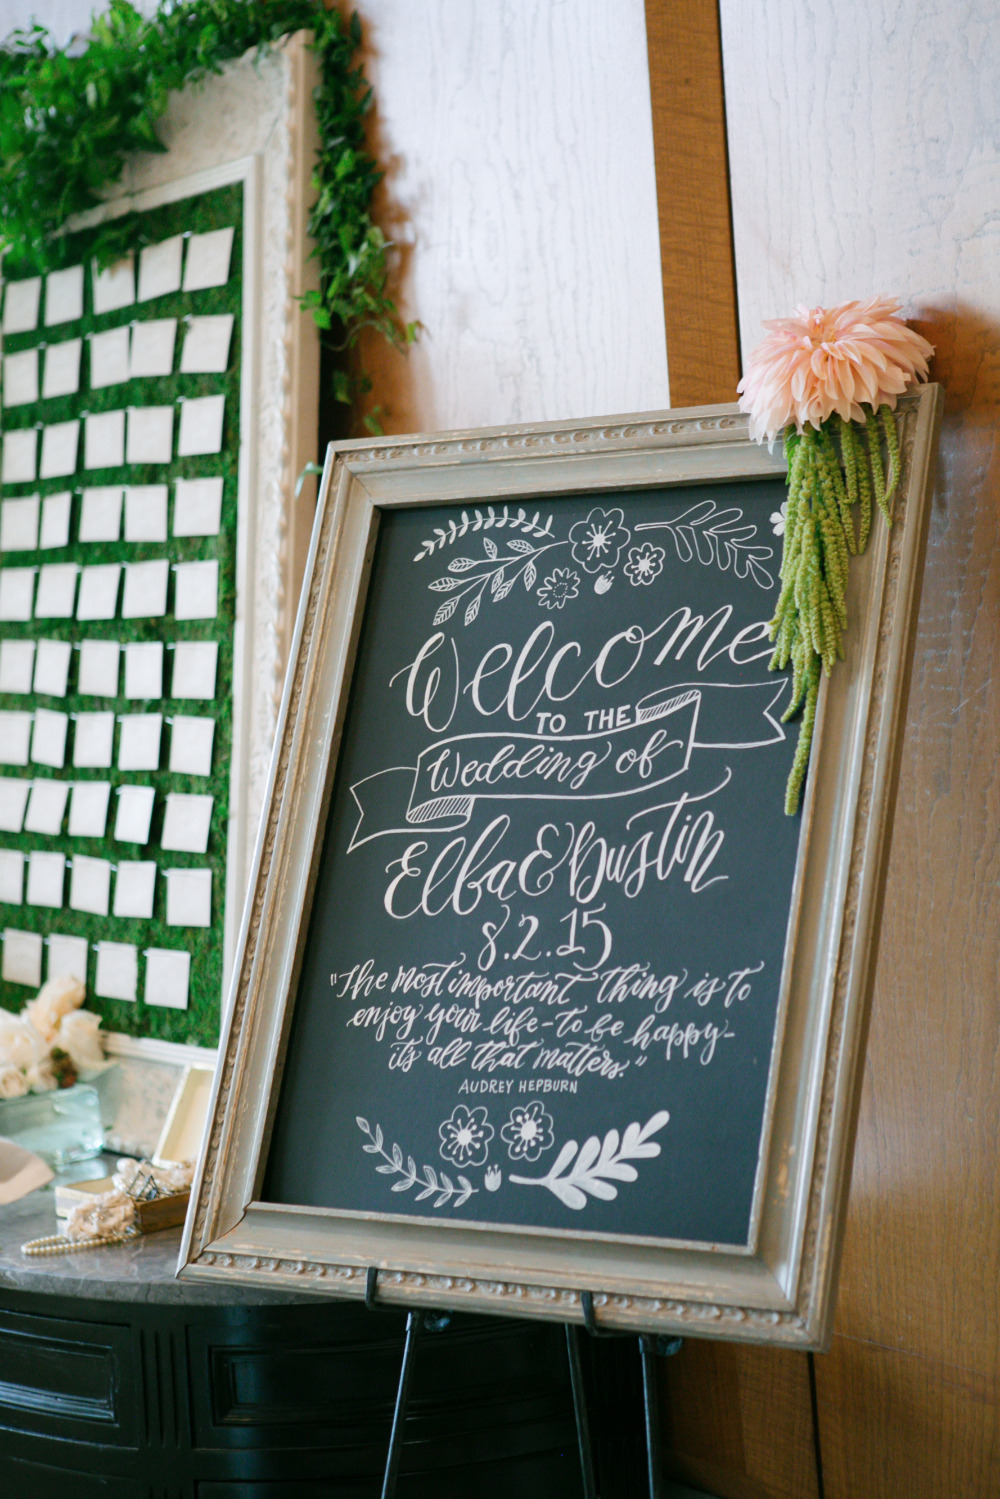 Welcome
TO THE
Wedding of
Elba & Dustin
8.2.15
"The most important thing is to
enjoy your life - to be happy -
it's all that matters."
AUDREY HEPBURN